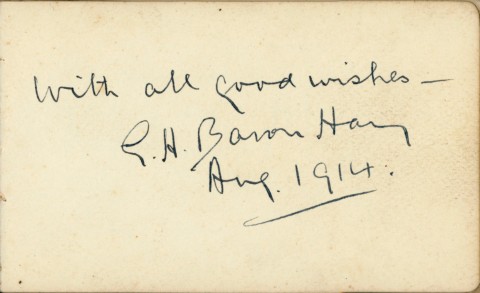 With all good wishes —
G. H. Baron Hay
Aug. 1914.